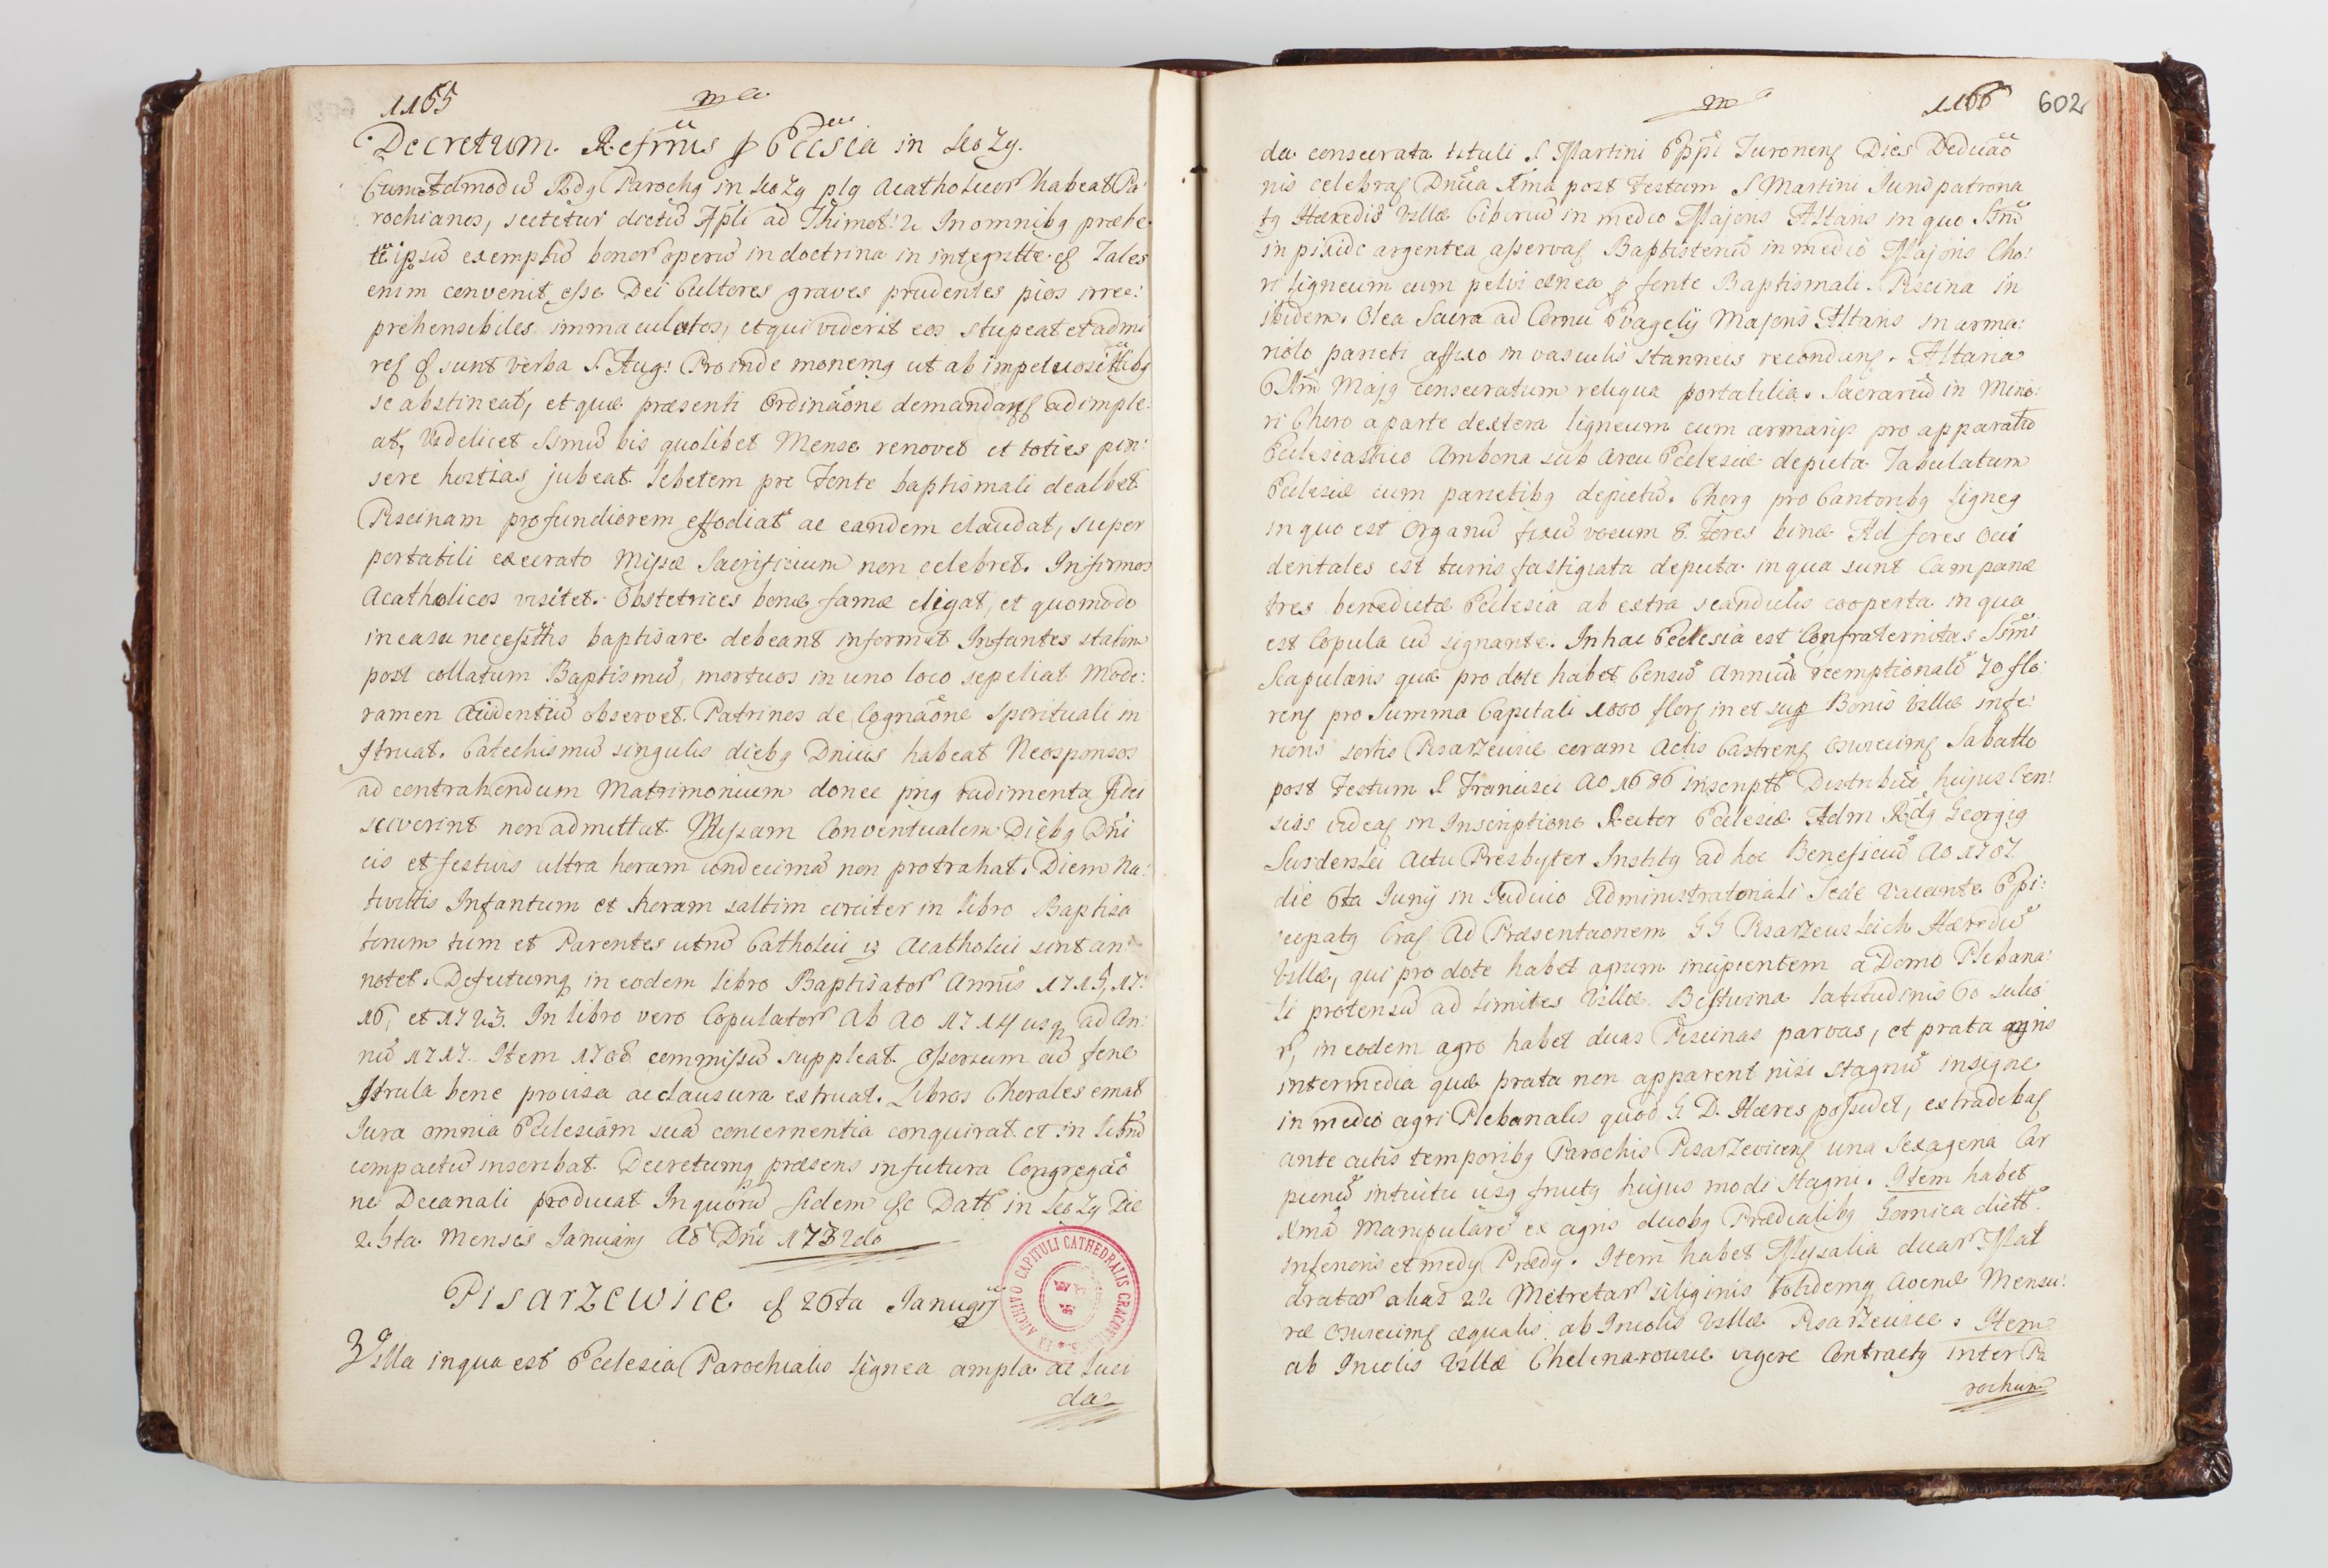 1165
Decretum Refrmis p Ecclsia in Kozy.
Cum Admodu Rdg Parochg in Kozy plg Acatholicor habeat Pa:
rochianos, sectetur dictu Apli ad Thimot: 2 In omnibg præbe
te ipsu exemplu bonor operu in doctrina in integritte Tales
enim convenit esse Dei Cultores graves prudentes pios irre:
prehensibiles immaculatos, et qui viderit eos stupeat et admi
ret sunt verba S Aug: Proinde monemg ut ab impetuosittibg
se abstineat, et quæ præsenti Ordinaone demandant adimple:
at, Videlicet Ssmu bis quolibet Mense renovet et toties pin:
sere hostias jubeat lebetem pro Fonte baptismali dealbet
Piscinam profundiorem effodiat ac eandem claudat, super
portatili execrato Missæ Sacrificium non celebret. Infirmos
Acatholicos visitet. Obstetrices bonæ famæ eligat, et quomodo
in casu necessittis baptisare debeant informet Infantes statim
post collatum Baptismu, mortuos in uno loco sepeliat Mode:
ramen observet. Patrinos de Cognaone Spirituali in
struat. Catechismu singulis diebg Dnicis habeat Neosponsos
ad contrahendum Matrimonium donec prig rudimenta Fidei
sciverint non admittat. Missam Conventualem Diebg Dni
cis et festivis ultra horam undecima non protrahat. Diem Na:
tivittis Infantum et horam saltim circiter in libro Baptisa
torum tum et Parentes utru Catholici Acatholici sint an
notet. Defectumq in eodem libro Baptisator Annis 1715, 17:
16, et 1725. In libro vero Copulator Ab Ao 1714 usq ad An:
nu 1717. Item commissu suppleat. Ossorium cu fene
strula bene provisa ac clausura extruat. Libros Chorales emat
Jura omnia Ecclesiam sua concernentia conquirat et in libru
compactu inscribat. Decretumq præsens in futura Congregao
ne Decanali producat In quoru fidem Datt in Kozy Die
25ta Mensis Januarij Ao Dni 1732do
PISARZEWICE 26ta Januarij
Villa in qua est Ecclesia Parochialis lignea ampla ac luci
da
EX ARCHIVO CAPITULI CATHEDRALIS CRACOVIENSIS
1166
602
da consecrata tituli S Martini Eppi Turonens Dies Dedicao
nis celebrat Dnica post Festum S Martini Jurispatrona
tg Hæredis Villæ Ciboriu in medio Majoris Altaris in quo Ssmu
in pixide argentea asservat Baptisteriu in medio Majoris Cho:
ri ligneum cum pelvi ænea p fonte Baptismali. Piscina in
ibidem. Olea Sacra ad Cornu Evagelij Majoris Altaris in arma:
riolo parieti affixo in vasculis stanneis recondunt. Altaria
Majg consecratum reliqua portatilia. Sacrariu in Mino:
ri Choro a parte dextera ligneum cum armarijs pro apparatu
Ecclesiastico Ambona sub arcu Ecclesiæ depicta Tabulatum
Ecclesiæ cum parietibg depictu. Chorg pro Cantoribg ligneg
in quo est Organu fixu vocum 8. Fores binæ Ad fores Occi
dentales est turris fastigiata depicta in qua sunt Campanæ
tres benedictæ Ecclesia ab extra scandulis cooperta in qua
est Copula cu signante. In hac Ecclesia est Confraternitas Ssmi
Scapularis quæ pro dote habet Censu Annuu reemptionale 70 flo
rens pro Summa Capitali 1000 flors in et sup Bonis Villæ infe:
rioris sortis Pisarzewice coram Actis Castrens Osviecims Sabatto
post Festum S Francisci Ao 1686 inscript Distributi hujus Cen:
sus videat in Inscriptione Rector Ecclesiæ Adm Rdg Georgig
Actu Presbyter Institg ad hoc Beneficiu Ao 1707
die 6ta Junij in Judicio Administratoriali Sede Vacante Eppi:
Ad Præsentaonem GG Pisarzewskich Hæredu
Villæ, qui pro dote habet agrum incipientem a Domo Plebana:
li protensu ad limites Villæ Bestwina latitudinis 60 sulco
r, in eodem agro habet duas Piscinas parvas, et prata agris
intermedia quæ prata non apparent nisi stagnu insigne
in medio agri Plebanalis quod G D. Hæres possidet, extradebat
ante actis temporibg Parochis Pisarzevicens una Sexagena Car
pionu intuitu usg fructg hujus modi Stagni. Item habet
Xma Manipulare ex agris duobg Prædialibg Gornica dictt
inferioris et medij Prædij. Item habet Missalia duar Mal
dratar alias 22 Metretar siliginis totidemq avenæ Mensu:
ræ Osviecims æqualis ab Incolis Villæ Pisarzewice. Item
ab Incolis Villæ vigore Contractg inter Pa
rochum